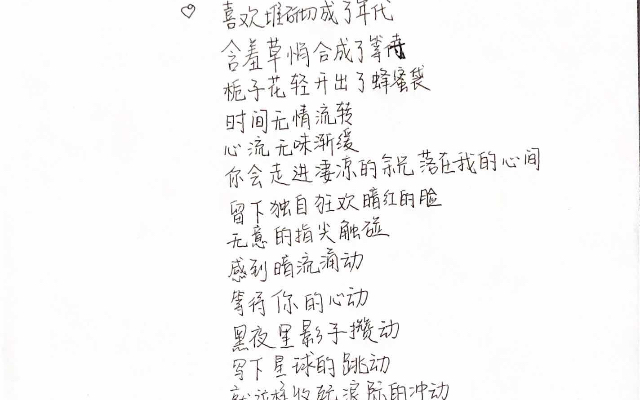 喜欢堆砌成了年代
含羞草悄合成了等待
栀子花轻开出了蜂蜜袋
时间无情流转
心流无味渐缓
你会走进凄凉的余光落在我的心间
留下独自狂欢暗红的脸
无意的指尖触碰
感到暗流涌动
等待你的心动
黑夜里影子攒动
写下星球的跳动
的冲动